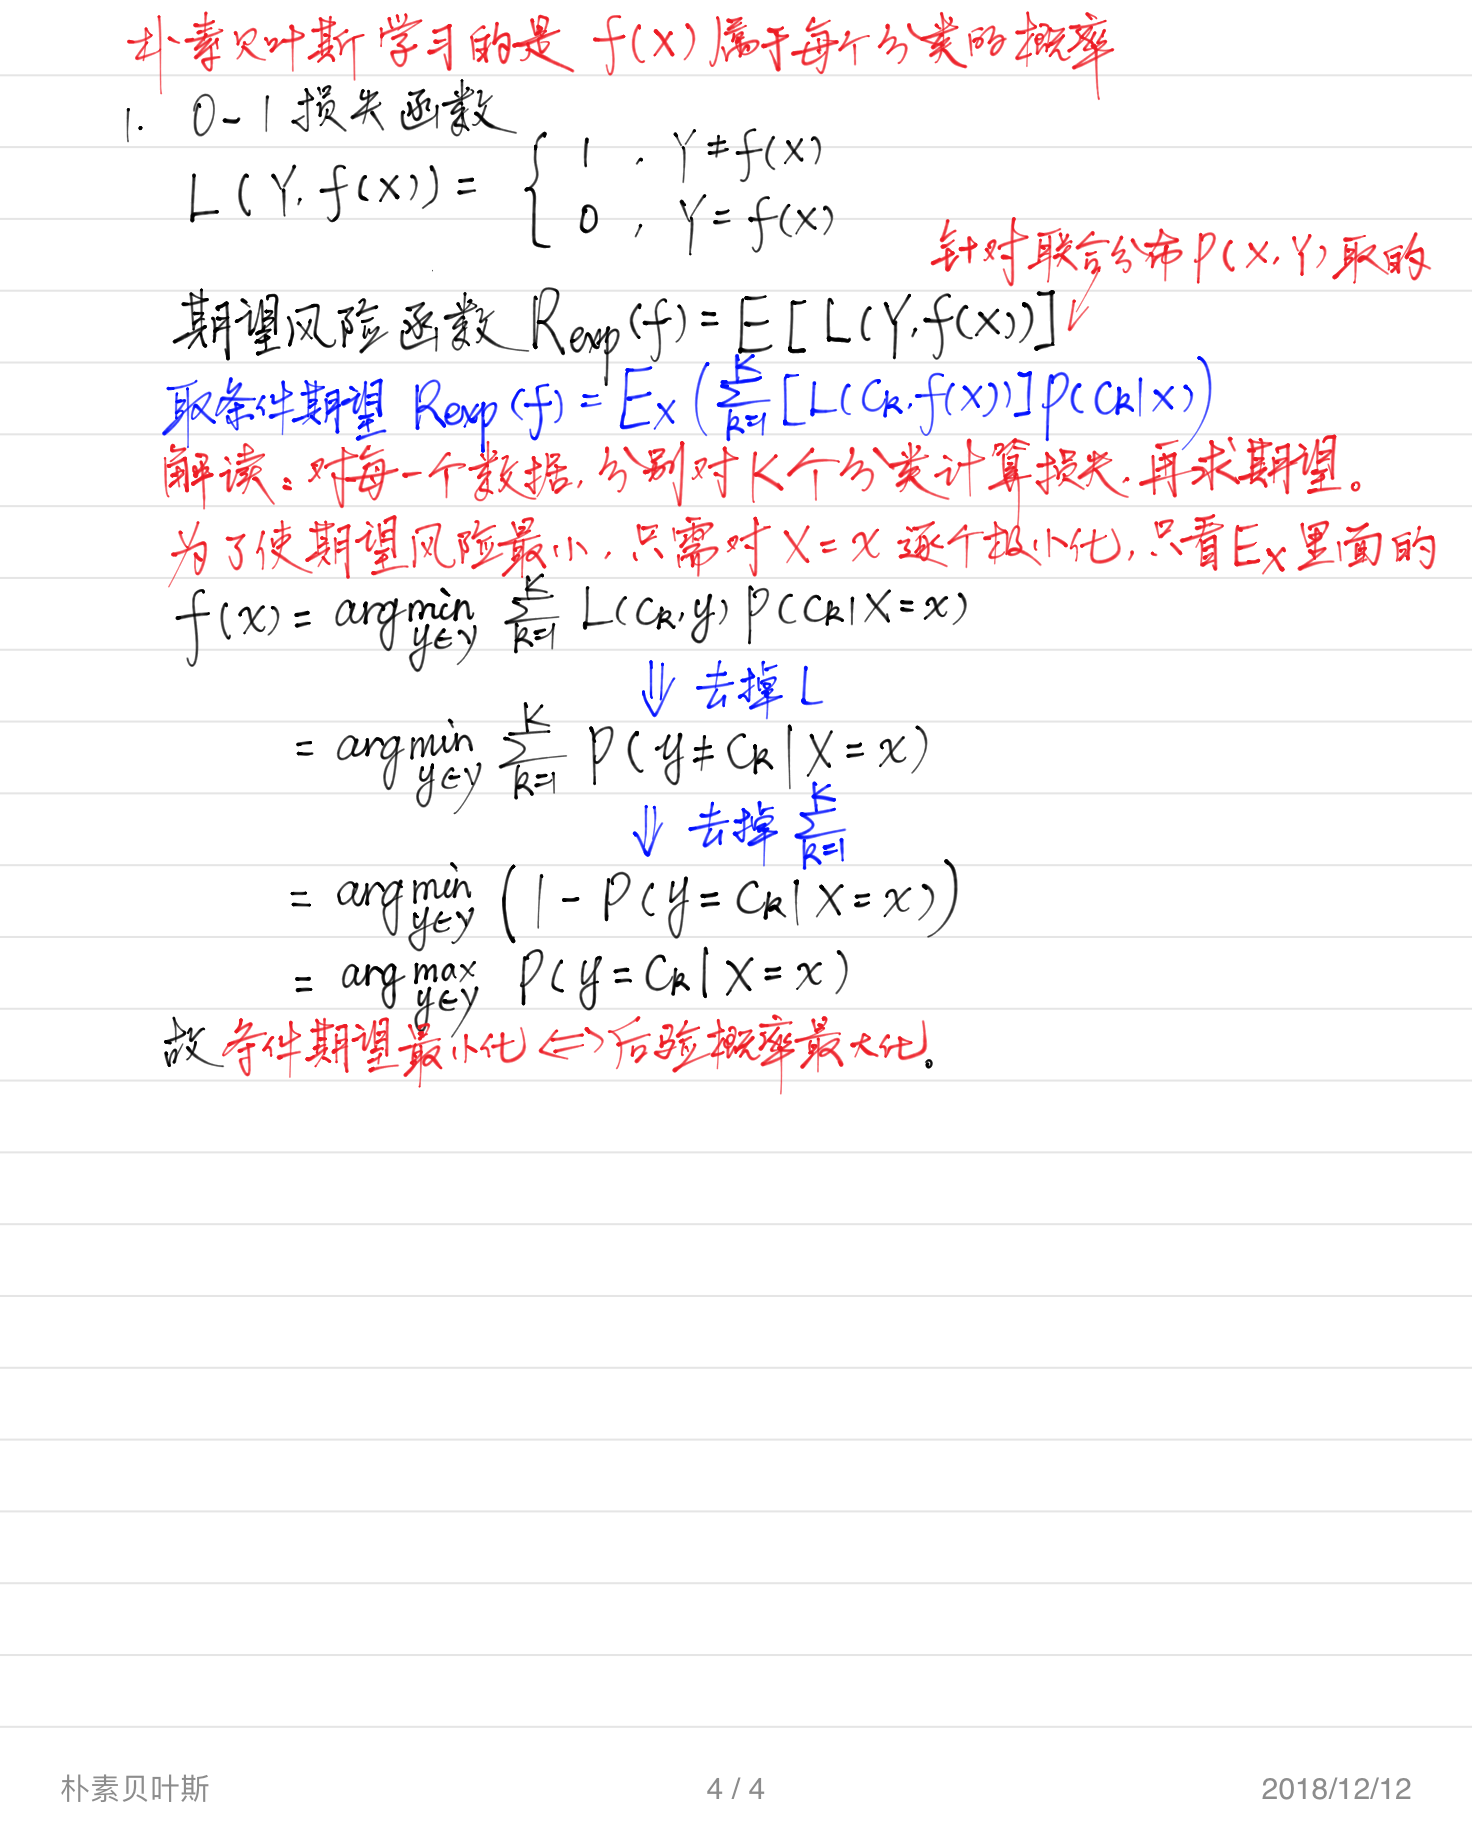 朴素贝叶斯学习的是 f(x)属于每个分类的概率
1. 0-1损失函数
L(Y, f(x)) = { 1 , Y≠f(x)
0 , Y=f(x)
针对联合分布P(X,Y)取的
期望风险函数 R_exp(f) = E[L(Y,f(x))]
取条件期望 R_exp(f) = E_X(∑_{k=1}^{K} [L(C_k,f(x))]P(C_k|X))
解读:对每一个数据,分别对K个分类计算损失,再求期望。
为了使期望风险最小,只需对X=x逐个极小化,只看E_X里面的
f(x) = arg min_{y∈Y} ∑_{k=1}^{K} L(C_k,y) P(C_k|X=x)
⇓ 去掉L
= arg min_{y∈Y} ∑_{k=1}^{K} P(y≠C_k|X=x)
⇓ 去掉 ∑_{k=1}^{K}
= arg min_{y∈Y} (1-P(y=C_k|X=x))
= arg max_{y∈Y} P(y=C_k|X=x)
故条件期望最小化⇔后验概率最大化。
朴素贝叶斯 4 / 4 2018/12/12